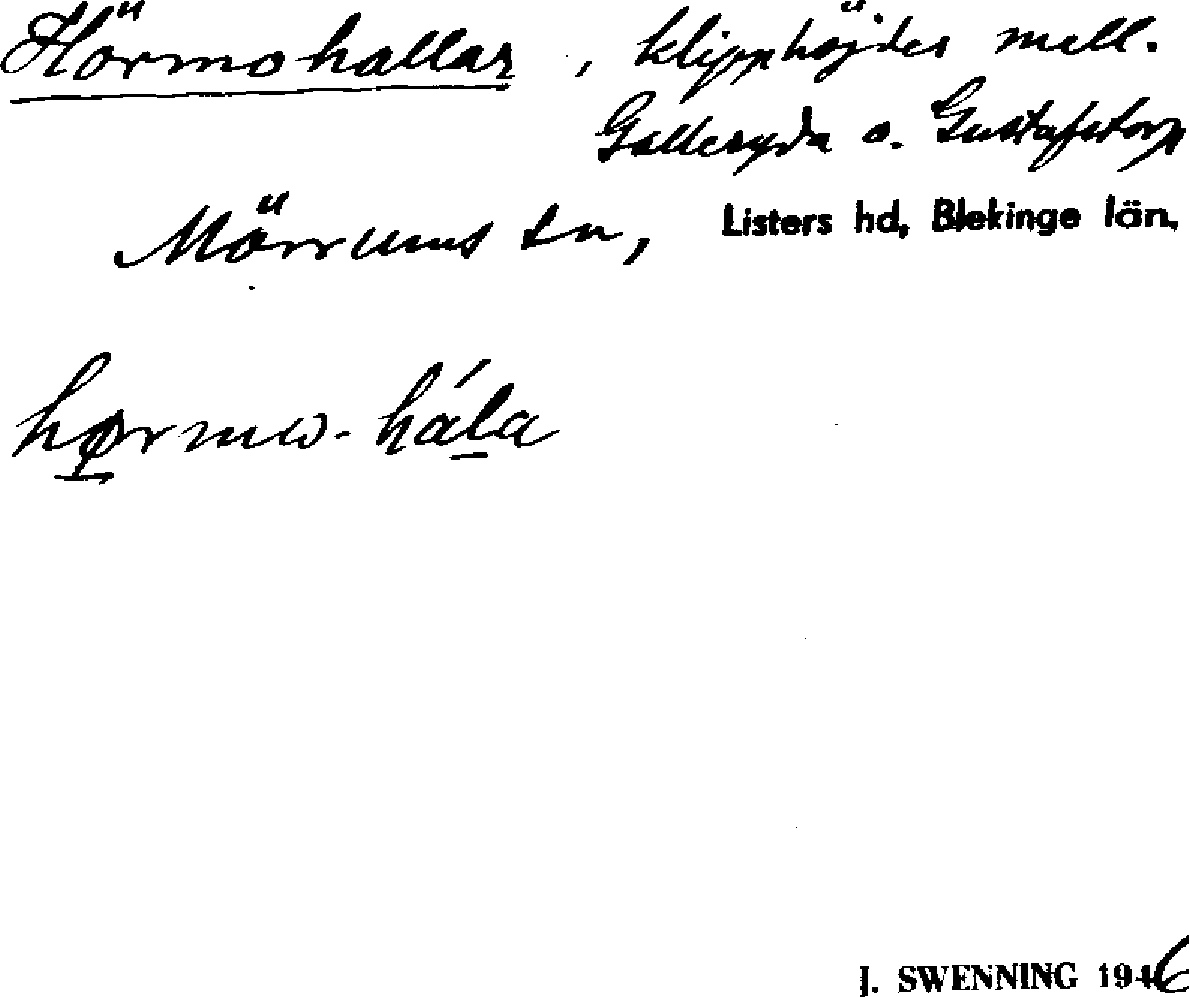 Hörmohallar, klipphöjder mell.
Galleryda o. Gustafstorp
Mörrums sn, Listers hd, Blekinge län.
hørmω-hála
J. SWENNING 1946